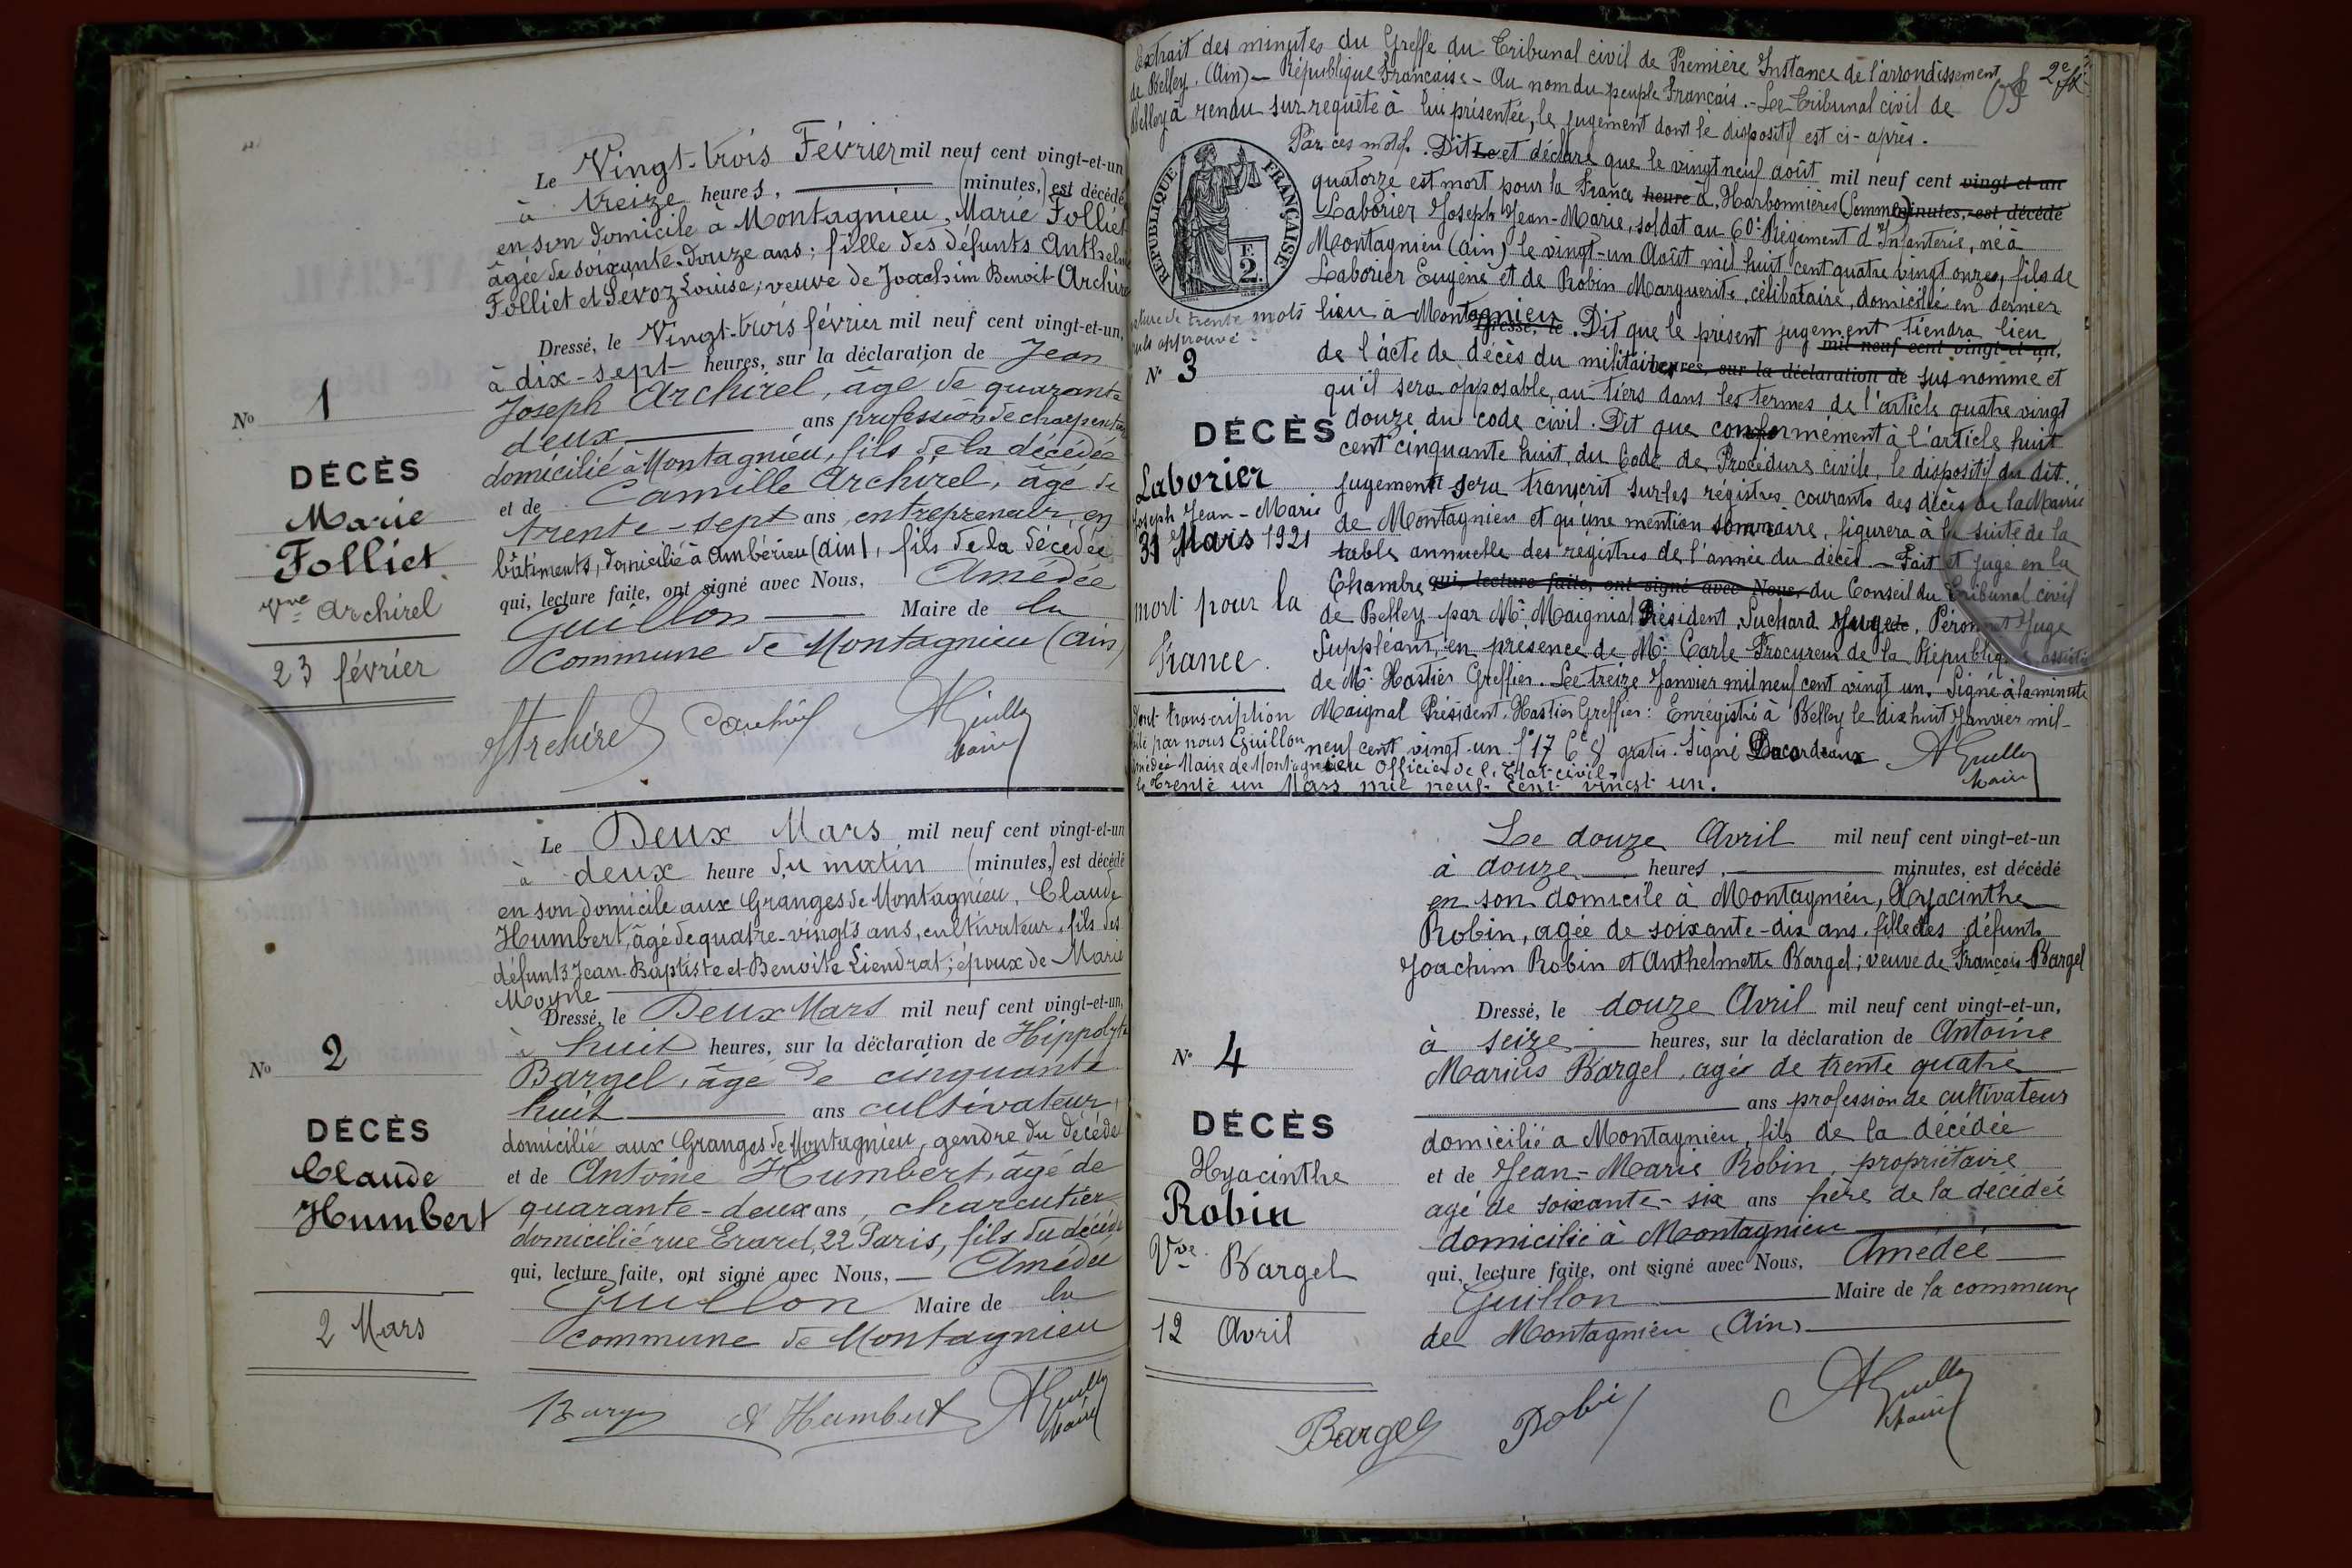 Le Vingt-trois Février mil neuf cent vingt-et-un
à treize heures, (minutes,) est décédée
en son domicile à Montagnieu, Marie Folliet
âgée de soixante-douze ans; fille des défunts Anthelme
Folliet et Sévoz Louise; veuve de Joachim Benoit Archirel
Dressé, le Vingt-trois février mil neuf cent vingt-et-un,
à dix-sept heures, sur la déclaration de Jean
Joseph Archirel, âgé de quarante
deux, ans profession de charpentier
domicilié à Montagnieu, fils de la décédée
et de Camille Archirel, âgé de
trente-sept ans, entrepreneur en
bâtiments, domicilié à Ambérieu (Ain), fils de la décédée
qui, lecture faite, ont signé avec Nous, Amédée
Guillon Maire de la
commune de Montagnieu (Ain)
No 1
DÉCÈS
Marie
Folliet
Vve Archirel
23 février
Archirel AGuillon
Maire
Le Deux Mars mil neuf cent vingt-et-un
à deux heure du matin (minutes,) est décédé
en son domicile aux Granges de Montagnieu, Claude
Humbert, âgé de quatre-vingts ans, cultivateur, fils des
défunts Jean-Baptiste et Benoite Liendrat; époux de Marie
Moyne
Dressé, le Deux Mars mil neuf cent vingt-et-un,
à huit heures, sur la déclaration de Hippolyte
Bargel, âgé de cinquante
huit ans cultivateur,
domicilié aux Granges de Montagnieu, gendre du décédé
et de Antoine Humbert, âgé de
quarante-deux ans, charcutier
domicilié rue Erard, 22 Paris, fils du décédé
qui, lecture faite, ont signé avec Nous, Amédée
Guillon Maire de la
commune de Montagnieu
No 2
DÉCÈS
Claude
Humbert
2 Mars
A Humbert AGuillon
Maire
2e
Extrait des minutes du Greffe du Tribunal civil de Première Instance de l'arrondissement
de Belley. (Ain) - République Française - Au nom du peuple Français. - Le Tribunal civil de
Belley à rendu sur requête à lui présentée, le jugement dont le dispositif est ci-après.
Par ces motifs. Dit Le et déclare que le vingt neuf août mil neuf cent vingt-et-un
quatorze est mort pour la France heure à, Harbonnières (Somme) minutes, est décédé
Laborier Joseph Jean-Marie, soldat au 60e Régiment d'Infanterie, né à
Montagnieu (Ain) le vingt-un Août mil huit cent quatre vingt onze, fils de
Laborier Eugène et de Robin Marguerite, célibataire, domicilié en dernier
lieu à Montagnieu Dressé, le. Dit que le présent jugement tiendra lieu
mil neuf cent vingt-et-un,
de l'acte de décès du militaire heures, sur la déclaration de sus nommé et
qu'il sera opposable, au tiers dans les termes de l'article quatre vingt
douze du code civil. Dit que conformément à l'article huit
cent cinquante huit, du Code de Procédure civile, le dispositif du dit.
jugement sera transcrit sur les régistres courants des décès de la Mairie
de Montagnieu et qu'une mention sommaire, figurera à la suite de la
table annuelle des régistres de l'année du décès. - Fait et jugé en la
Chambre qui, lecture faite, ont signé avec Nous, du Conseil du Tribunal civil
de Belley par Mr. Maignial Président, Suchard Juge de, Péronnet Juge
Suppléant, en présence de Mr. Carle Procureur de la République assisté
de Mr. Hastier Greffier. Le treize Janvier mil neuf cent vingt un. Signé à la minute
Maignal Président. Hastier Greffier: Enregistré à Belley le dix huit Janvier mil-
neuf cent vingt-un fo 17 Ce 8 gratis. Signé Lacordeaux AGuillon
Maire
RÉPUBLIQUE FRANÇAISE
F.
2.
rature de trente mots
nuls approuvé
No 3
DÉCÈS
Laborier
Joseph Jean-Marie
31 Mars 1921
mort pour la
France.
Dont transcription
faite par nous Guillon
Amédée Maire de Montagnieu Officier de l'Etat-civil,
le trente un Mars mil neuf cent vingt un.
Le douze Avril mil neuf cent vingt-et-un
à douze heures, minutes, est décédé
en son domicile à Montagnieu, Hyacinthe
Robin, agée de soixante-dix ans, fille des défunts
Joachim Robin et Anthelmette Bargel; veuve de François Bargel
Dressé, le douze Avril mil neuf cent vingt-et-un,
à seize heures, sur la déclaration de Antoine
Marius Bargel, agé de trente quatre
ans profession de cultivateur
domicilié a Montagnieu, fils de la décédée
et de Jean-Marie Robin, propriétaire
agé de soixante-six ans frère de la décédée
domicilié à Montagnieu
qui, lecture faite, ont signé avec Nous, Amédée
Guillon Maire de la commune
de Montagnieu (Ain)
No 4
DÉCÈS
Hyacinthe
Robin
Vve Bargel
12 Avril
Bargel Robin AGuillon
Maire